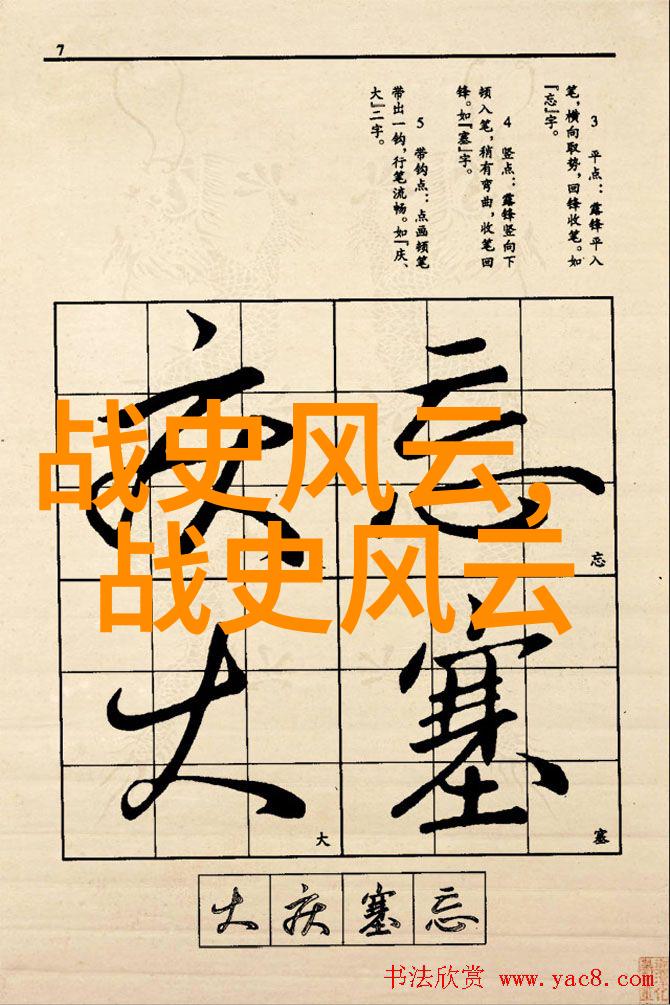 7
3 平点：露锋平入
笔，横向取势，回锋收笔。如
『忘』字。
4 竖点：露锋竖向下
顿入笔，稍有弯曲，收笔回
锋。如『塞』字。
5 带钩点：点画顿笔
带出一钩，行笔流畅。如『庆、
大』二字。
战史风云，
战史风云
庆 忘
忘
大 塞
大 塞
大 庆 塞 忘
书法欣赏 www.yac8.com